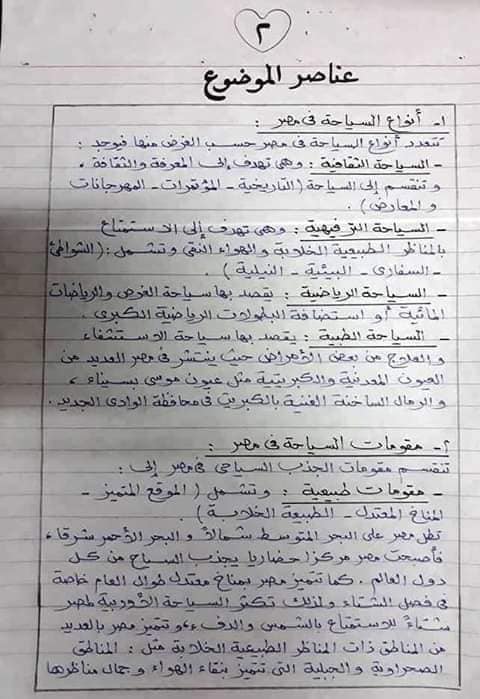 ٢
عناصر الموضوع
١- أنواع السياحة فى مصر :
تتعدد أنواع السياحة فى مصر حسب الغرض منها فيوجد :
- السياحة الثقافية : وهى تهدف إلى المعرفة والثقافة ،
و تنقسم إلى السياحة (التاريخية - المؤتمرات - المهرجانات
و المعارض ) .
- السياحة الترفيهية : وهى تهدف إلى الاستمتاع
بالمناظر الطبيعية الخلابة و الهواء النقى و تشمل : (الشواطئ
- السفارى - البيئية - النيلية ) .
- السياحة الرياضية : يقصد بها سياحة الغوص والرياضات
المائية أو استضافة البطولات الرياضية الكبرى .
- السياحة الطبية : يقصد بها سياحة الاستشفاء
و العلاج من بعض الأمراض حيث ينتشر فى مصر العديد من
العيون المعدنية والكبريتية مثل عيون موسى بسيناء ،
و الرمال الساخنة الغنية بالكبريت فى محافظة الوادى الجديد .
٢- مقومات السياحة فى مصر :
تنقسم مقومات الجذب السياحى فى مصر إلى :
- مقومات طبيعية : و تشمل ( الموقع المتميز -
المناخ المعتدل - الطبيعة الخلابة ) .
تطل مصر على البحر المتوسط شمالاً و البحر الأحمر شرقاً ،
فأصبحت مصر مركزاً حضارياً يجذب السياح من كل
دول العالم . كما تتميز مصر بمناخ معتدل طوال العام خاصة
فى فصل الشتاء و لذلك تكثر السياحة الأوربية لمصر
شتاءً للاستمتاع بالشمس والدفء ، و تتميز مصر بالعديد
من المناطق ذات المناظر الطبيعية الخلابة مثل : المناطق
الصحراوية و الجبلية التى تتميز بنقاء الهواء و جمال مناظرها